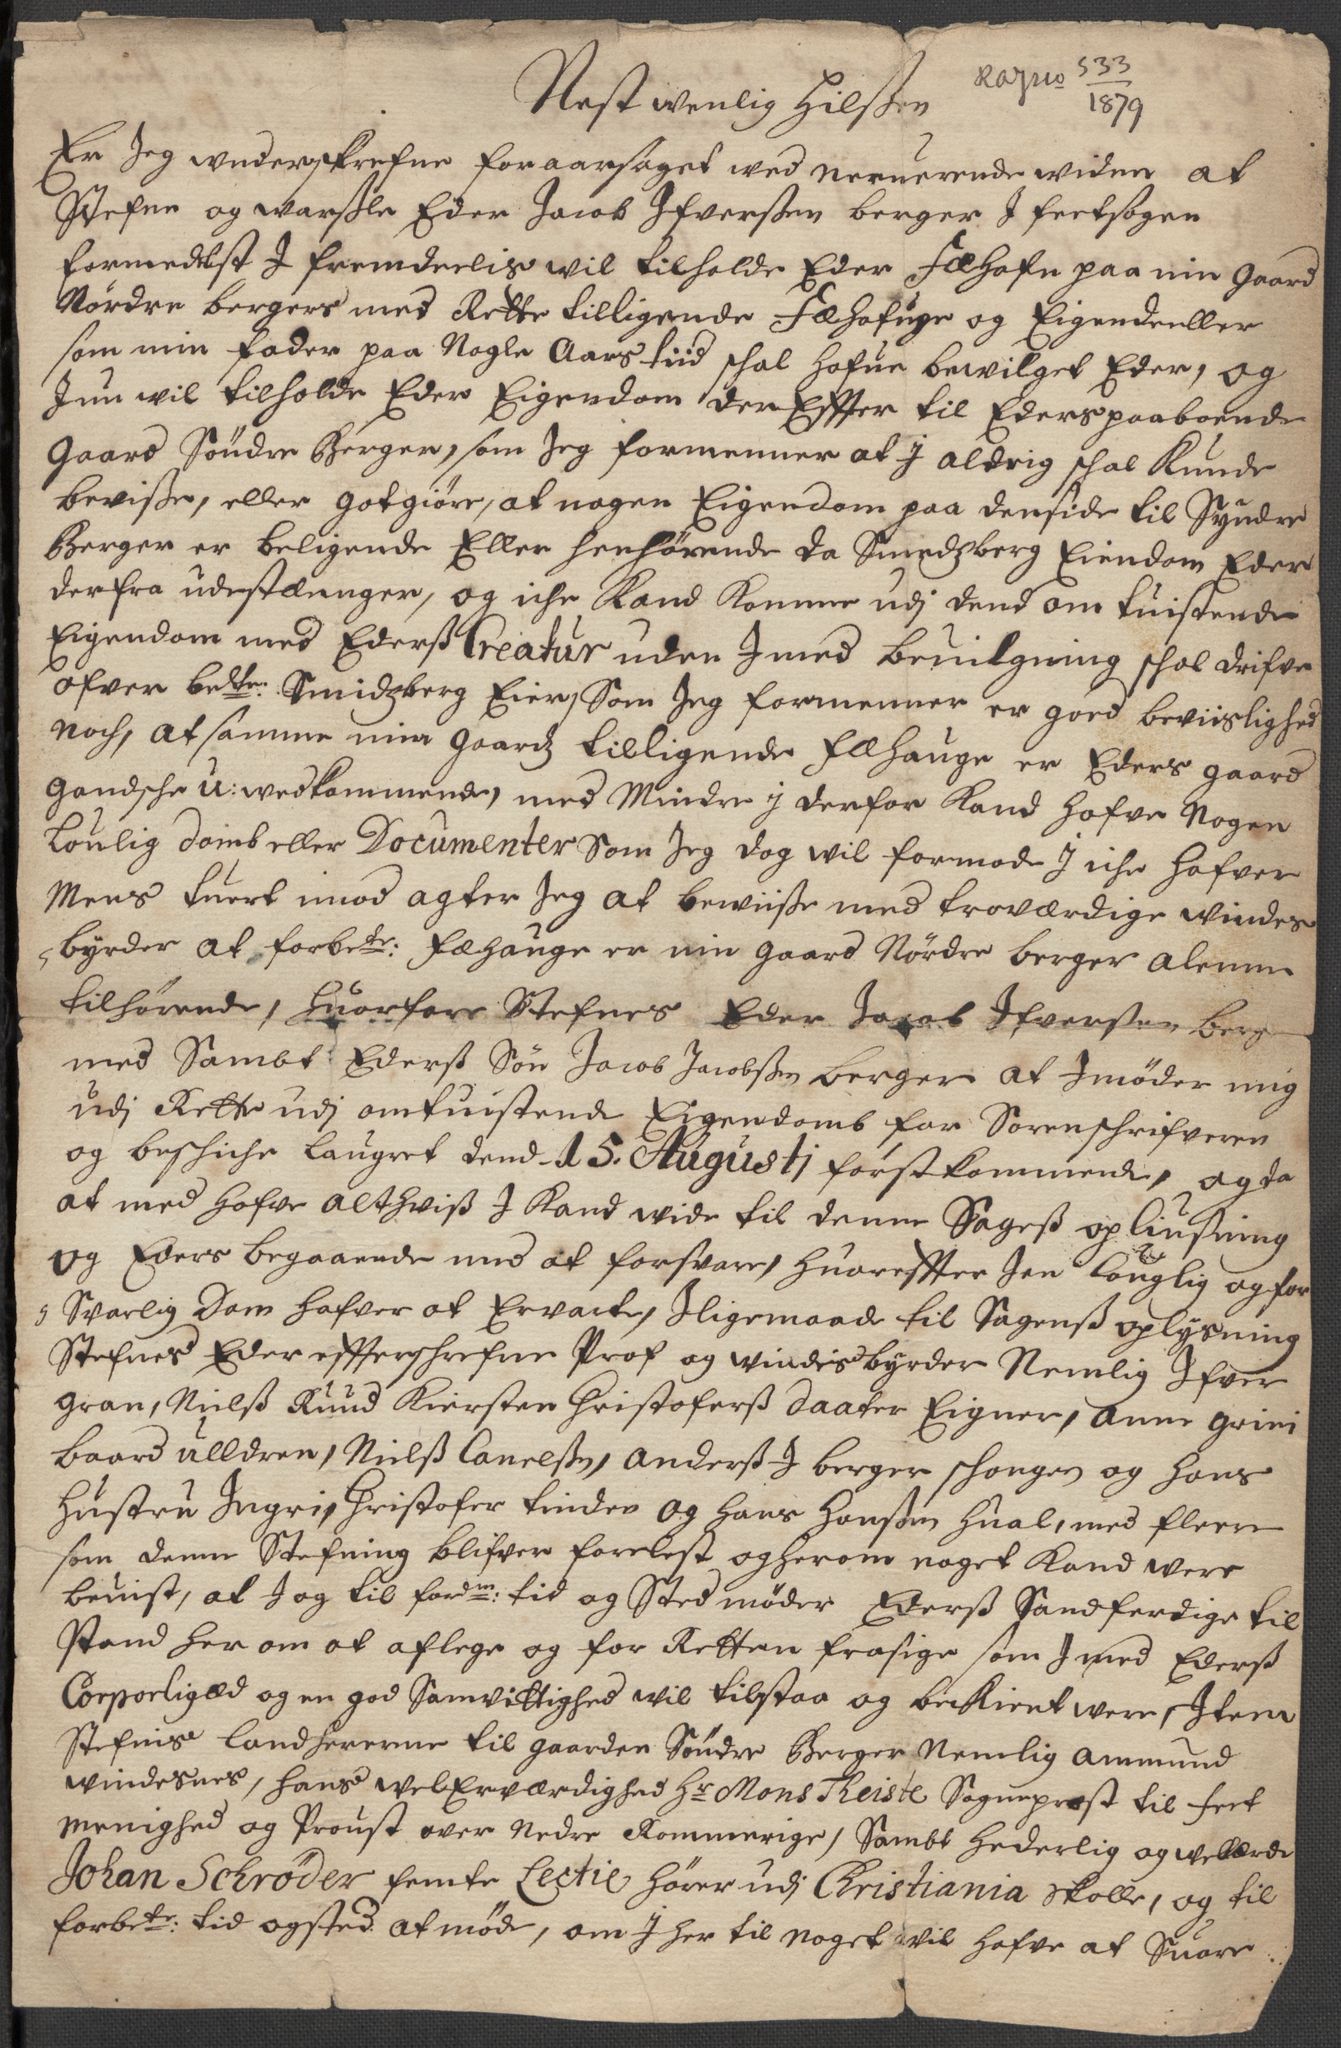 Nest wenlig Hilsßen
RAJno 533/1879
Er Jeg wnderskrefne foraarsaget wed nerverende widen at
Stefne og warßle Eder Jacob Ifverßen berger J feetsogen
formedelst J fremdeelis wil tilholde Eder Fæhafn paa min gaard
Nördre bergers med Rette tilligende Fæhafuge og Eigendeeller
som min fader paa Nogle Aars tiid schal hafue bewilget Eder, og
J nu wil tilholde Eder Eigendom der Effter til Eders paaboende
gaard Söndre Berger, som Jeg formenner at J aldrig schal Kunde
bevisse, eller gotgiöre, at nogen Eigendom paa den side til Syndre
Berger er beligende Eller henhörende da Smedzberg Eiendom Eder
derfra udestænger, og iche Kand Komme udj dend om tuistende
Eigendom med Ederß Creatur uden J med beuilgning schal drifve
ofver bedte: Smidzberg Eier, Som Jeg formenner er goed beviislighed
noch, at samme min gaardz tilligende fæhauge er Eders gaard
gandsche u: wedkommende, med Mindre ij derfor Kand hafve Nogen
Loulig domb eller Documenter Som Jeg dog wil formode J iche hafver
Mens tuert imod agter Jeg at bewiiße med troværdige windes
byrder at forbete: fæhauge er min gaard Nördre berger alenne
tilhörende, huorfore Stefnes Eder Jacob Ifverßen berg
med Sambt Ederß Sön Jacob Jacobßen berger at J möder mig
udj Rette udj omtuistende Eigendomb for Sorenschrifveren
og beschiche Laugret dend 15. Augustj förstkommende, og da
at med hafve alt hviß J Kand wide til denne Sageß opliußning
og Eders begaaende med at forsvare, huoreffter Jen louglig og for
Svarlig Dom hafver at Ervarte, Jligemaade til Sagenß oplysning
Stefnes Eder effterschrefne Prof og windisbyrder Nemlig Ifver
gran, Nielß Ruud Kiersten Christoferß daater Eigner, Anne grini
baard ulldren, Nielß Canelßen, Anderß J berger schongen og hans
hustru Ingri, Christofer linden og hans Hanßen Hual, med fleere
som denne Stefning blifver forelest og herom noget Kand were
beuist, at J og til fordm: tid og Sted möder Ederß Sandferdige til
Stand her om at aflege og for Retten frasige som J med Ederß
Corporlig æd og en god Samvittighed wil tilstaa og beKient were, Item
Stefnis landherrerne til gaarden Söndre Berger Nemlig Ammund
windesnes, hans welErværdighed Hr Mons Theiste Sogneprest til feet
menighed og Proust over Nedre Rommerige, Sambt hederlig og wellærde
Johan Schröder femte Lectie hörer udj Christiania skolle, og til
forbete: tid og sted at möde, om J her til noget wil hafve at Suare